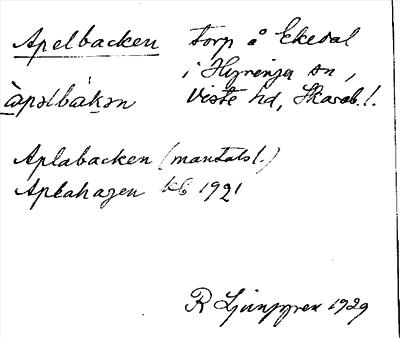 Apelbacken torp å Ekedal
i Hyringa sn,
àpəlbàkən Viste hd, Skarab. l.
Aplabacken (mantalsl.)
Aplahagen kb 1921
R Ljunggren 1929